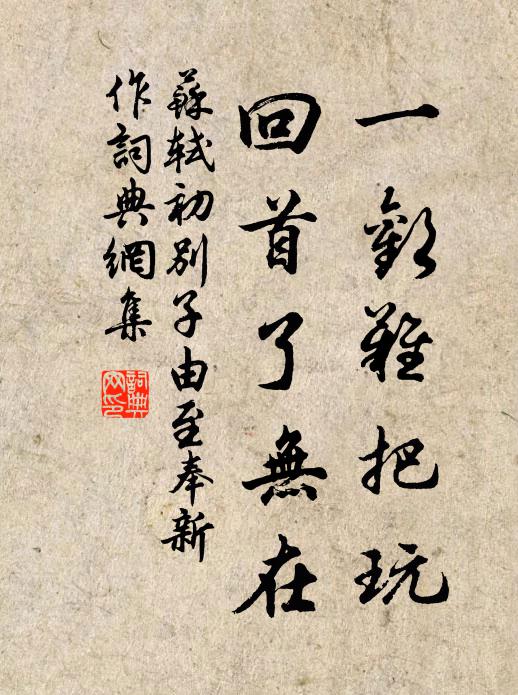 一歡難把玩
回首了無在
蘇軾初別子由至奉新
作詞典網集
詞典網印